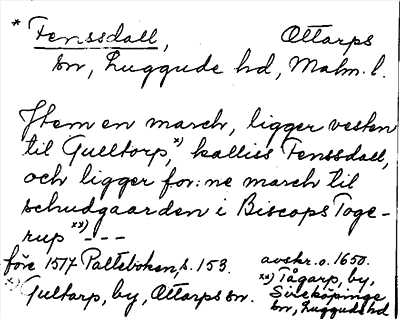 * Fenssdall, Ottarps
sn, Luggude hd, Malm. l.
Jtem en march, ligger vesten
til Gulltorp,*) kalliss Fenssdall,
och ligger for:ne march til
schudgaarden i Biscops Toge-
rup **) ---
före 1517 Palteboken, s. 153. avskr. o. 1650.
*) Gultarp, by, Ottarps sn.
**) Tågarp, by,
Sireköpinge
sn, Luggude hd